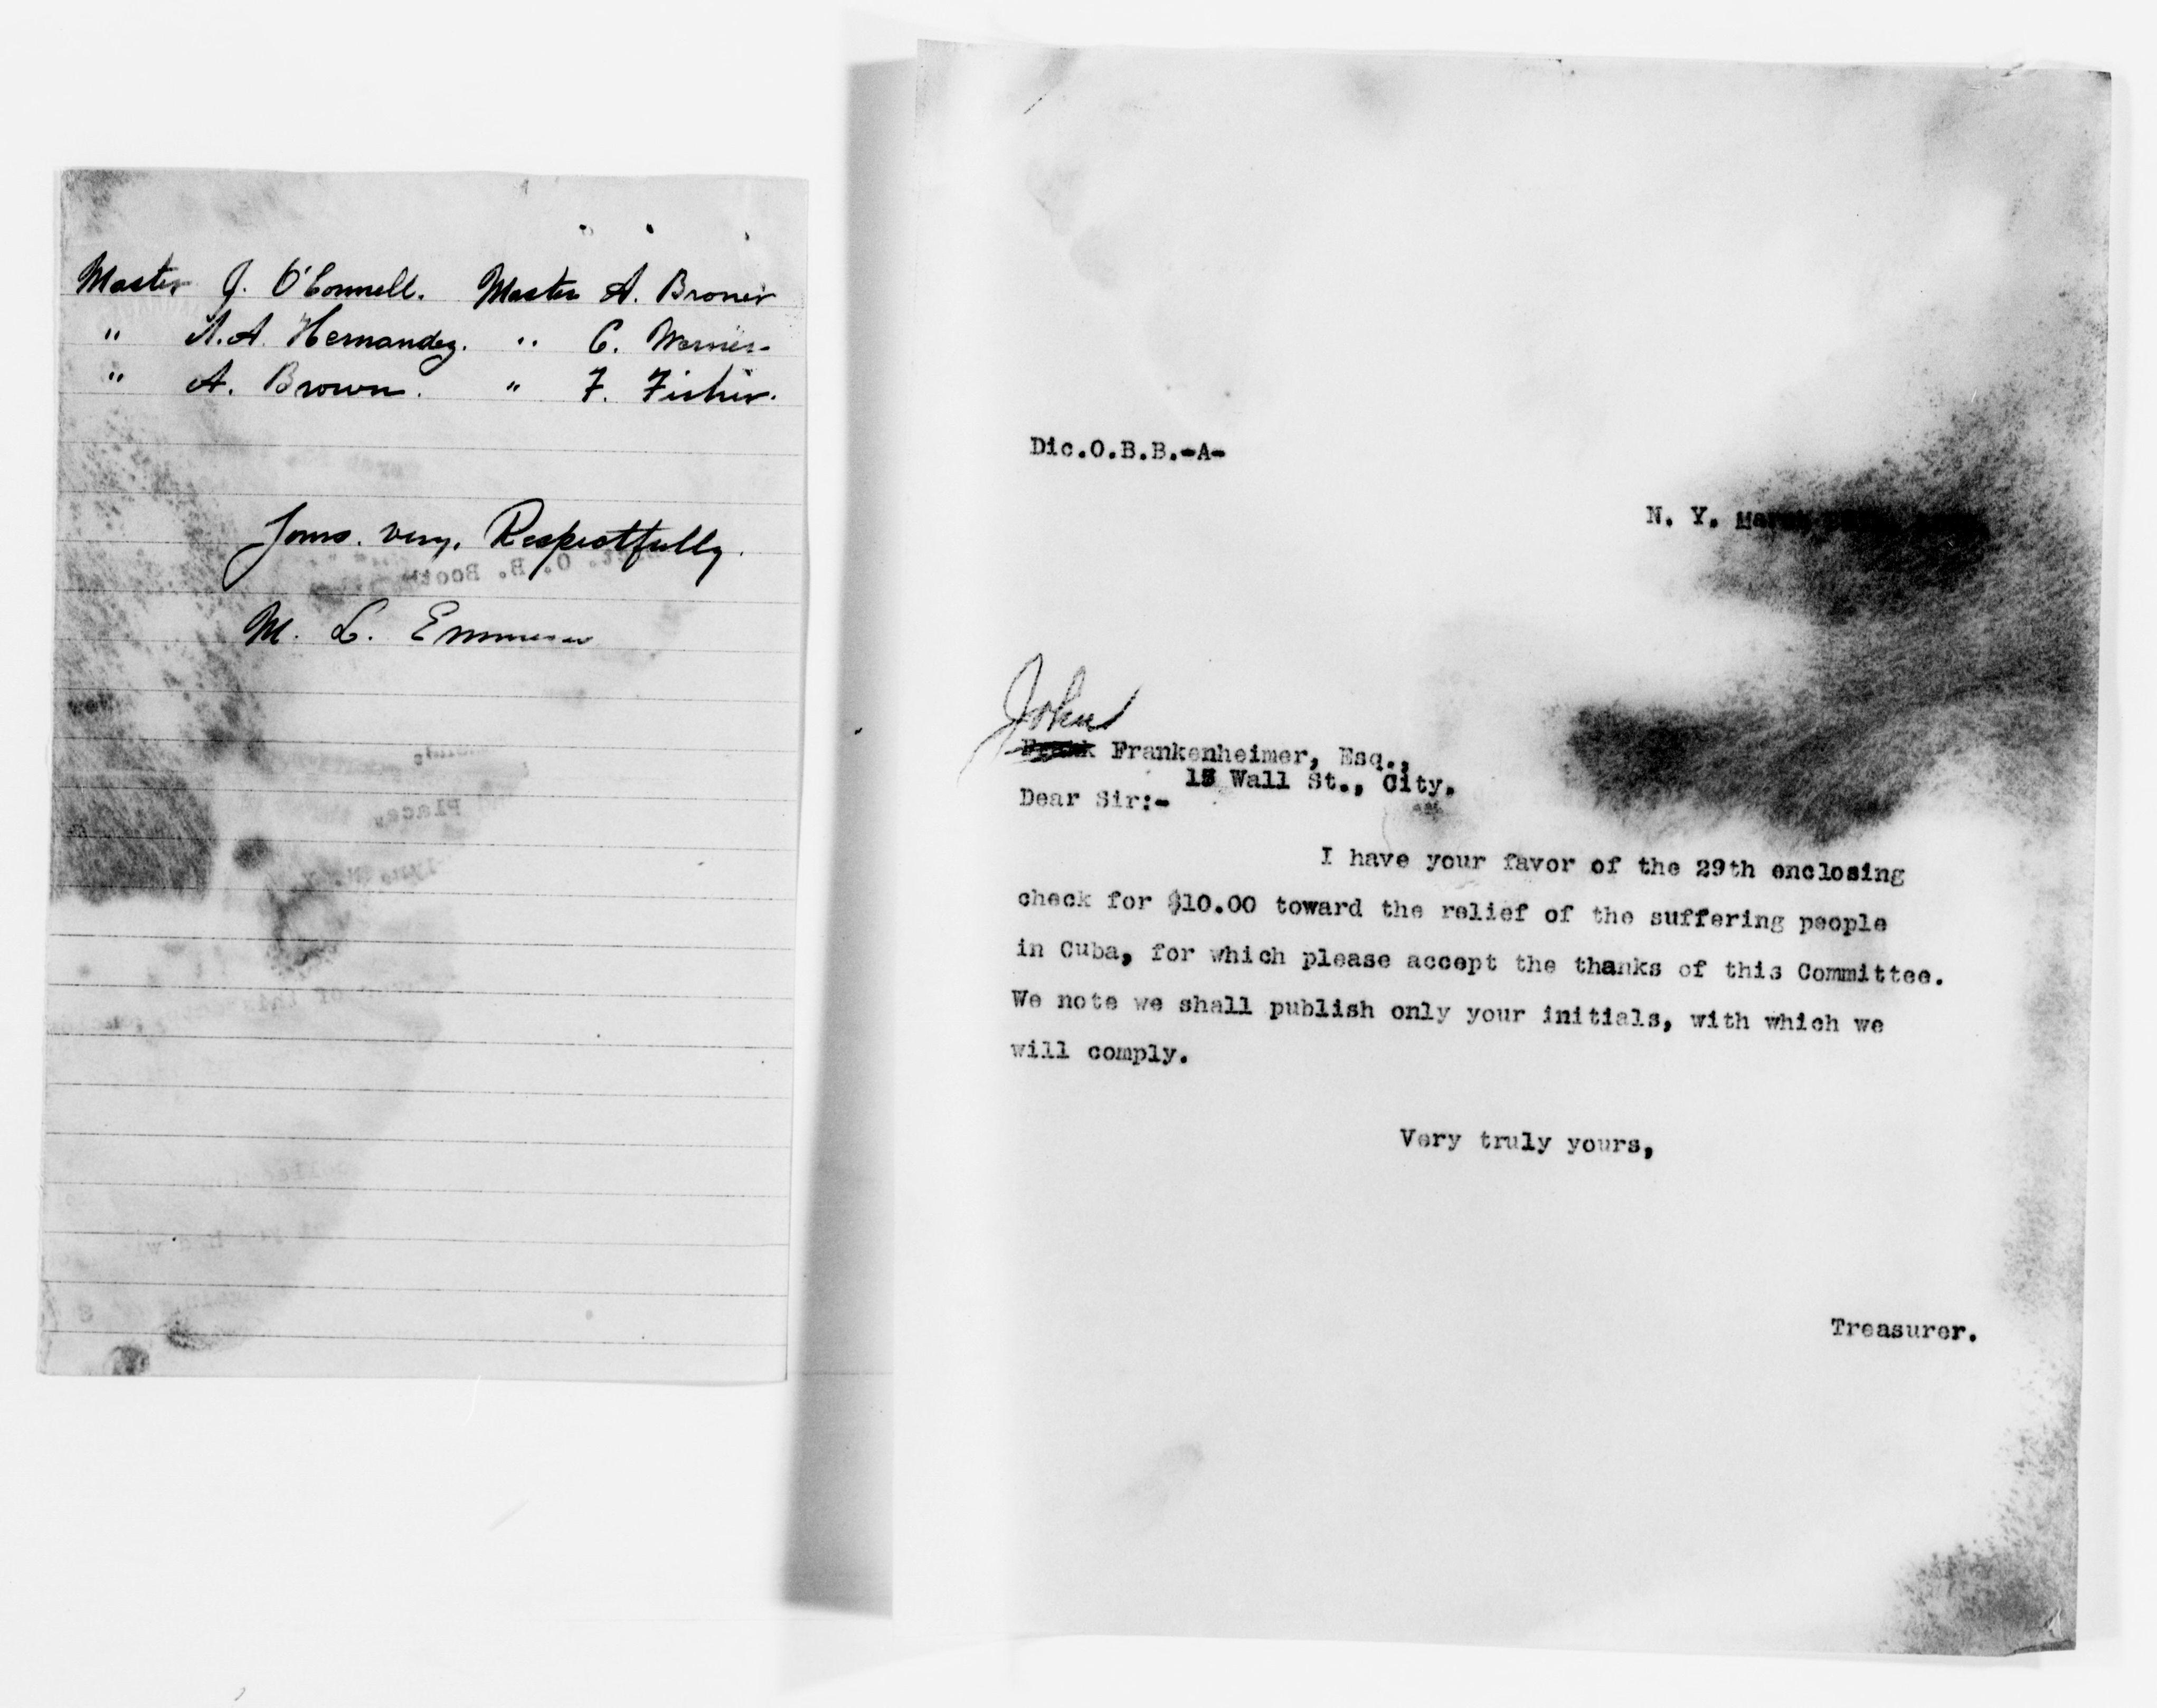 Master J. O'Connell. Master A. Broner
" A.A. Hernandez. " C. Werner
" A. Brown. " F. Fisher.
Yours. very. Respectfully.
M. L.
Dic.O.B.B.-A-
N. Y. March
John
Frank Frankenheimer, Esq.,
15 Wall St., City.
Dear Sir:-
I have your favor of the 29th enclosing
check for $10.00 toward the relief of the suffering people
in Cuba, for which please accept the thanks of this Committee.
We note we shall publish only your initials, with which we
will comply.
Very truly yours,
Treasurer.